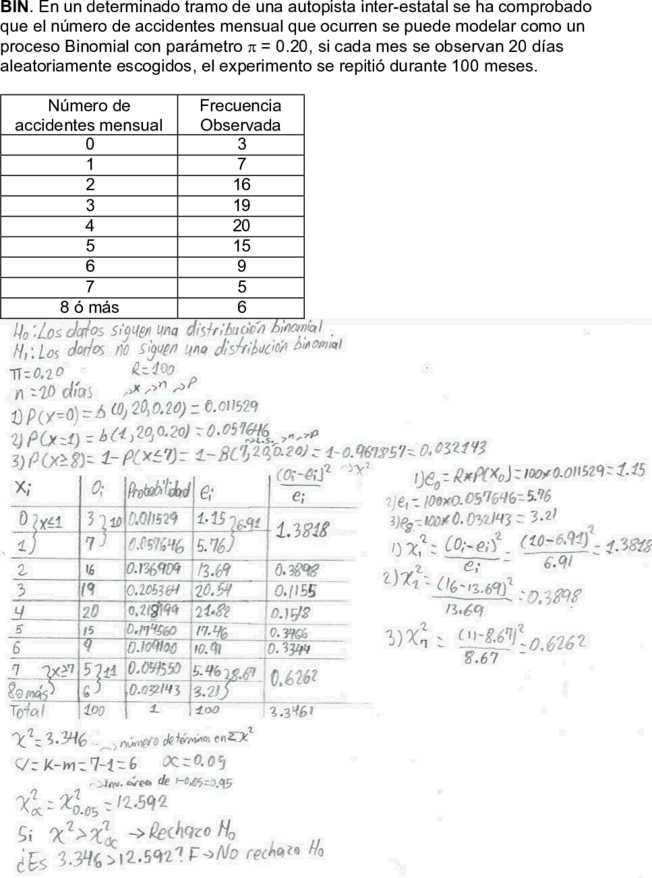 BIN. En un determinado tramo de una autopista inter-estatal se ha comprobado
que el número de accidentes mensual que ocurren se puede modelar como un
proceso Binomial con parámetro π = 0.20, si cada mes se observan 20 días
aleatoriamente escogidos, el experimento se repitió durante 100 meses.
Número de accidentes mensual Frecuencia Observada
0 3
1 7
2 16
3 19
4 20
5 15
6 9
7 5
8 ó más 6
H₀: Los datos siguen una distribución binomial.
H₁: Los datos no siguen una distribución binomial
π=0.20 R=100
n=20 días →x →n →p
1) P(x=0)=b(0,20,0.20)=0.011529
2) P(x=1)=b(1,20,0.20)=0.057646
→L.S. →n →p
3) P(x≥8)=1-P(x≤7)=1-B(7,20,0.20)=1-0.967857=0.032143
xᵢ Oᵢ Probabilidad eᵢ (Oᵢ-eᵢ)²/eᵢ →x²
0 }x≤1 3 }10 0.011529 1.15 }6.91 1.3818
1 7 0.057646 5.76
2 16 0.136909 13.69 0.3898
3 19 0.205364 20.54 0.1155
4 20 0.218199 21.82 0.1518
5 15 0.174560 17.46 0.3466
6 9 0.109100 10.91 0.3344
7 }x≥7 5 }11 0.054550 5.46 }8.67 0.6262
8 o más 6 0.032143 3.21
Total 100 1 100 3.3461
1) e₀=R*P(X₀)=100×0.011529=1.15
2) e₁=100×0.057646=5.76
3) e₈=100×0.032143=3.21
1) x₁²=(Oᵢ-eᵢ)²/eᵢ=(10-6.91)²/6.91=1.3818
2) x₂²=(16-13.69)²/13.69=0.3898
3) x₇²=(11-8.67)²/8.67=0.6262
x²=3.346 →número de términos en Σx²
V=K-m=7-1=6 α=0.05
→Inv. área de 1-0.05=0.95
x²α=x²0.05=12.592
Si x²>x²α →Rechazo H₀
¿Es 3.346>12.592? F→No rechazo H₀